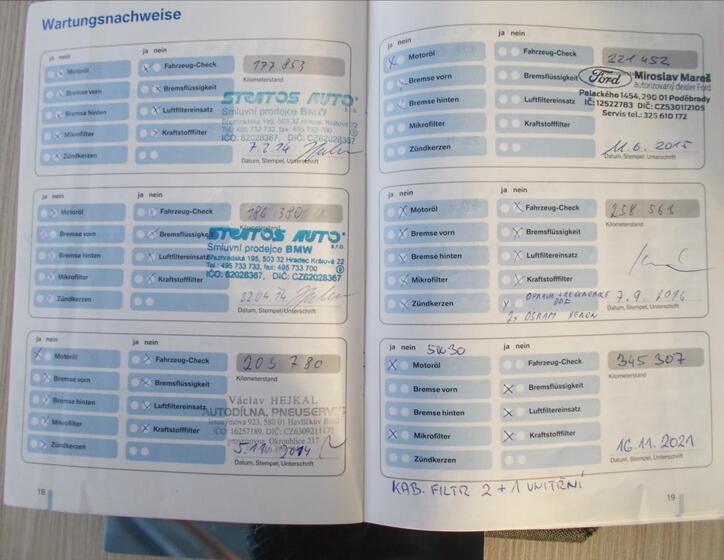 Wartungsnachweise
ja nein
ja nein
Motoröl
Fahrzeug-Check
177 853
Bremse vorn
Bremsflüssigkeit
Kilometerstand
Bremse hinten
Luftfiltereinsatz
STRATOS AUTO s.r.o.
Smluvní prodejce BMW
Březhradská 195, 503 32 Hradec Králové
Tel.: 495 733 733, fax: 495 733 700
IČO: 62028367, DIČ: CZ62028367
Mikrofilter
Kraftstofffilter
Zündkerzen
7.2.14
Datum, Stempel, Unterschrift
ja nein
ja nein
Motoröl
Fahrzeug-Check
186 380
Kilometerstand
Bremse vorn
Bremsflüssigkeit
STRATOS AUTO s.r.o.
Smluvní prodejce BMW
Březhradská 195, 503 32 Hradec Králové 2
Tel.: 495 733 733, fax: 495 733 700
IČO: 62028367, DIČ: CZ62028367
Bremse hinten
Luftfiltereinsatz
Mikrofilter
Kraftstofffilter
Zündkerzen
22.04.14
Datum, Stempel, Unterschrift
ja nein
ja nein
Motoröl
Fahrzeug-Check
203 780
Kilometerstand
Bremse vorn
Bremsflüssigkeit
Bremse hinten
Luftfiltereinsatz
Václav HEJKAL
AUTODÍLNA, PNEUSERVIS
923, 580 01 Havlíčkův Brod
IČO: 16257189, DIČ: CZ6309211172
provozovna, Okrouhlice 217
Mikrofilter
Kraftstofffilter
Zündkerzen
5.11.2014
Datum, Stempel, Unterschrift
18
ja nein
ja nein
Motoröl
Fahrzeug-Check
221 452
Bremse vorn
Bremsflüssigkeit
Kilometerstand
Ford
Miroslav Mareš
autorizovaný dealer Ford
Palackého 1454, 290 01 Poděbrady
IČ:12522783 DIČ: CZ530112105
Servis tel.: 325 610 172
Bremse hinten
Luftfiltereinsatz
Mikrofilter
Kraftstofffilter
Zündkerzen
11.6.2015
Datum, Stempel, Unterschrift
ja nein
ja nein
Motoröl
Fahrzeug-Check
258 568
Kilometerstand
Bremse vorn
Bremsflüssigkeit
Bremse hinten
Luftfiltereinsatz
Mikrofilter
Kraftstofffilter
Zündkerzen
DPF
7.9.2016
2x OSRAM XENON
Datum, Stempel, Unterschrift
ja nein
5W30
ja nein
Motoröl
Fahrzeug-Check
345 307
Kilometerstand
Bremse vorn
Bremsflüssigkeit
Bremse hinten
Luftfiltereinsatz
Mikrofilter
Kraftstofffilter
Zündkerzen
16.11.2021
Datum, Stempel, Unterschrift
KAB. FILTR 2+1 VNITŘNÍ
19